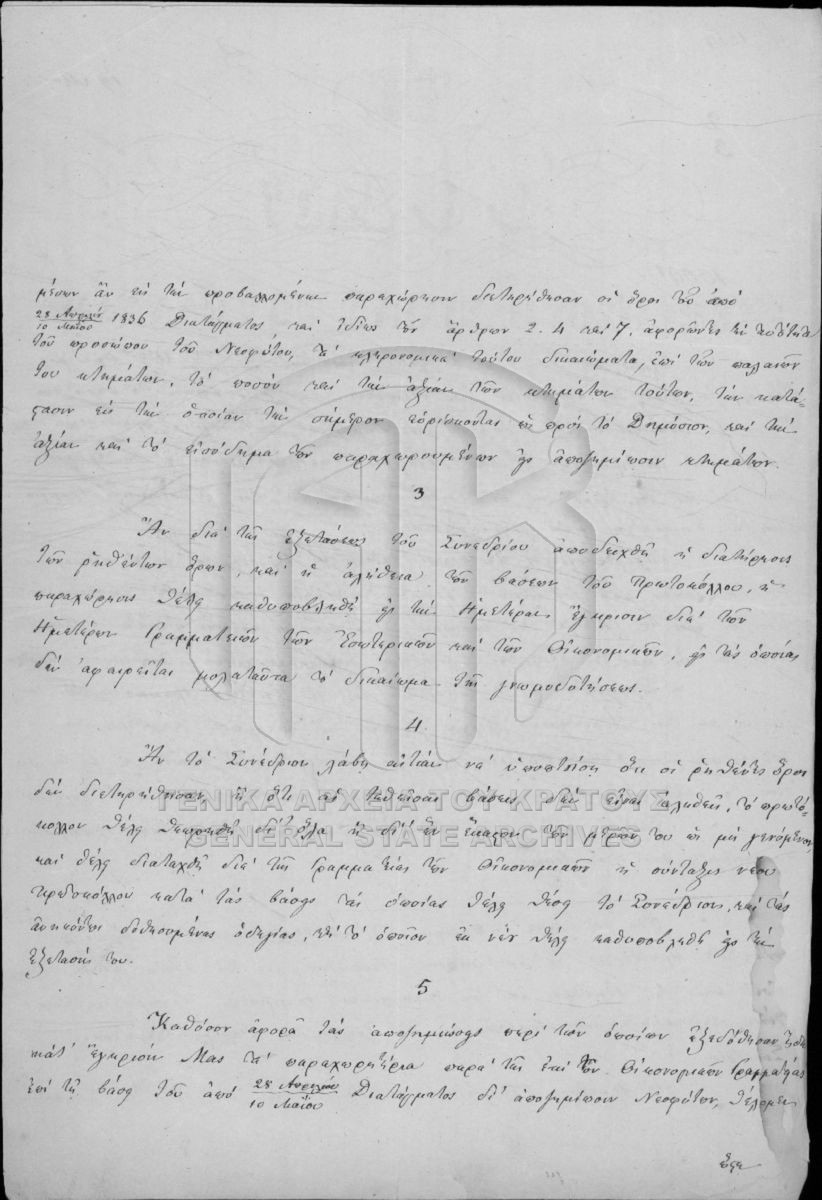 μέσων ἂν εἰς τὴν προβαλλομένην παραχώρησιν διετηρήθησαν οἱ ὅροι τοῦ ἀπὸ
28 Ἀπριλίου
10 Μαΐου 1836 Διατάγματος, καὶ ἰδίως τῶν ἄρθρων 2. 4 καὶ 7. ἀφορῶντες τὴν ταὐτότητα
τοῦ προσώπου τοῦ Νεοφώτου, τὰ κληρονομικὰ τούτου δικαιώματα, ἐπὶ τῶν παλαιῶν
του κτημάτων, τὸ ποσὸν καὶ τὴν ἀξίαν τῶν κτημάτων τούτων, τὴν κατά-
στασιν εἰς τὴν ὁποίαν τὴν σήμερον εὑρίσκονται ὡς πρὸς τὸ Δημόσιον, καὶ τὴν
ἀξίαν καὶ τὸ εἰσόδημα τῶν παραχωρουμένων εἰς ἀποζημίωσιν κτημάτων.
3
Ἂν διὰ τῆς ἐξετάσεως τοῦ Συνεδρίου ἀποδειχθῇ ἡ διατήρησις
τῶν ῥηθέντων ὅρων, καὶ ἡ ἀλήθεια τῶν βάσεων τοῦ Πρωτοκόλλου, ἡ
παραχώρησις θέλει καθυποβληθῆ εἰς τὴν Ἡμετέραν ἔγκρισιν διὰ τῶν
Ἡμετέρων Γραμματειῶν τῶν Ἐσωτερικῶν καὶ τῶν Οἰκονομικῶν, εἰς τὰς ὁποίας
δὲν ἀφαιρεῖται μολαταῦτα τὸ δικαίωμα τῆς γνωμοδοτήσεως.
4.
Ἂν τὸ Συνέδριον λάβῃ αἰτίαν νὰ ὑποπτεύσῃ ὅτι οἱ ῥηθέντες ὅροι
δὲν διετηρήθησαν ἢ ὅτι αἱ τεθεῖσαι βάσεις δὲν εἶναι ἀληθεῖς, τὸ πρωτό-
κολλον θέλει θεωρηθῆ δι' ὅλα ἢ δι' ἓν ἕκαστον τῶν μερῶν του ὡς μὴ γενόμενον,
καὶ θέλει διαταχθῆ διὰ τῆς Γραμματείας τῶν Οἰκονομικῶν ἡ σύνταξις νέου
πρωτοκόλλου κατὰ τὰς βάσεις τὰς ὁποίας θέλει θέσει τὸ Συνέδριον, καὶ τὰς
ἀνηκούσας δοθησομένας ὁδηγίας, τὸ ὁποῖον ἐκ νέου θέλει καθυποβληθῆ εἰς τὴν
ἐξέτασίν του.
5
Καθόσον ἀφορᾷ τὰς ἀποζημιώσεις περὶ τῶν ὁποίων ἐξεδόθησαν ἤδη
κατ' ἔγκρισίν Μας τὰ παραχωρητήρια παρὰ τῆς ἐπὶ τῶν Οἰκονομικῶν Γραμματείας
ἐπὶ τῇ βάσει τοῦ ἀπὸ 28 Ἀπριλίου
10 Μαΐου Διατάγματος δι' ἀποζημίωσιν Νεοφώτων, θέλομεν
ΓΕΝΙΚΑ ΑΡΧΕΙΑ ΤΟΥ ΚΡΑΤΟΥΣ
GENERAL STATE ARCHIVES